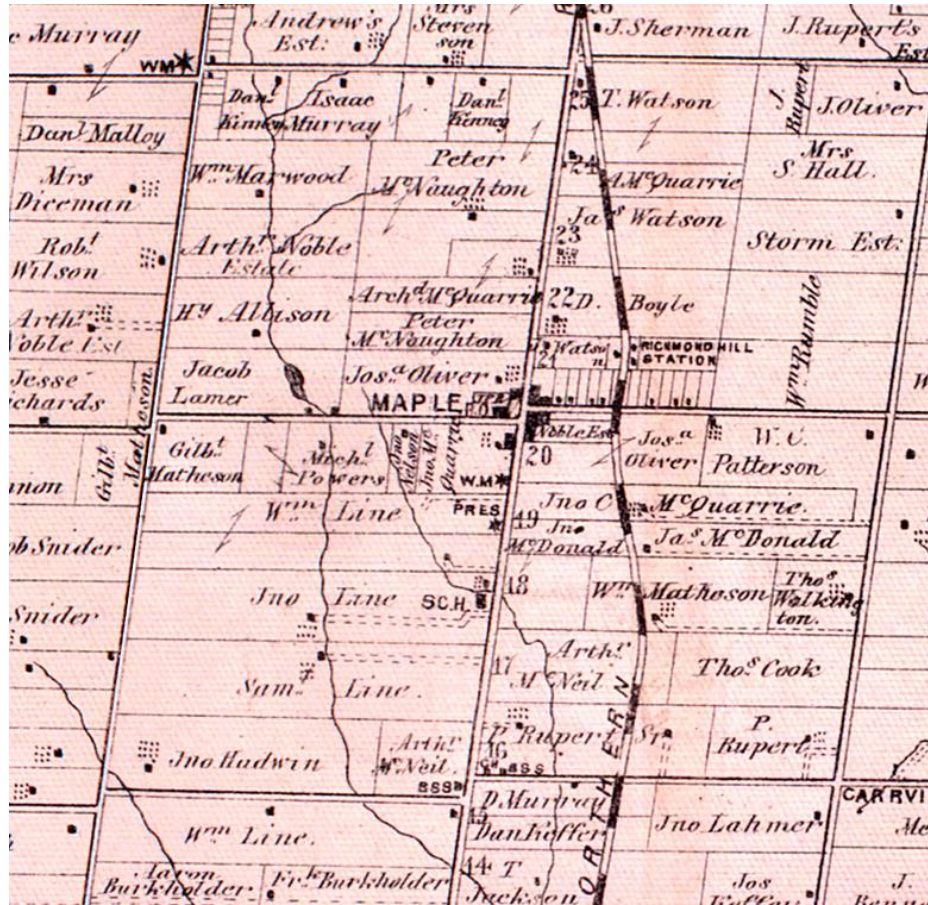 Murray
WM
Andrew's
Est:
Mrs
Steven
son
26
J. Sherman
J. Rupert's
Est
Danl Malloy
Danl
Kinney
Isaac
Murray
Danl
Kenney
25
T. Watson
J.
Rupert
J. Oliver
Mrs
Diceman
Wm Marwood
Peter
McNaughton
24
A. McQuarrie
Mrs
S. Hall.
Robt
Wilson
Arthr Noble
Estate
23
Jas Watson
Storm Est:
Arthr
Noble Est
Hy Allison
Archd McQuarrie
Peter
McNaughton
22
D. Boyle
Wm Rumble
21
Watso
n
RICHMOND HILL
STATION
Jesse
ichards
Jacob
Lamer
Josa Oliver
MAPLE
P.O.
Gilbt
Matheson.
Gilbt
Matheson
Michl
Powers
Jno
Nelson
Jno Mc
Quarrie
W.M
Noble Est
20
Josa
Oliver
W. C.
Patterson
non
Wm Line
PRES
19
Jno C McQuarrie.
Jno
McDonald
Jas McDonald
ob Snider
Snider
Jno Line
SC.H.
18
Wm Matheson
Thos
Walking
ton.
17
Arthr
McNeil
Thos Cook
Saml Line.
NORTHERN
P. Rupert Sr
16
P.
Rupert
Jno Hadwin
Arthr
McNeil.
BSS
CH
BSS
CARRVI
Wm Line.
15
D. Murray
Dan Keffer
Jno Lahmer
Mc
Aaron
Burkholder
Frk Burkholder
14
T
Jackson
Jos
Keffer
J.